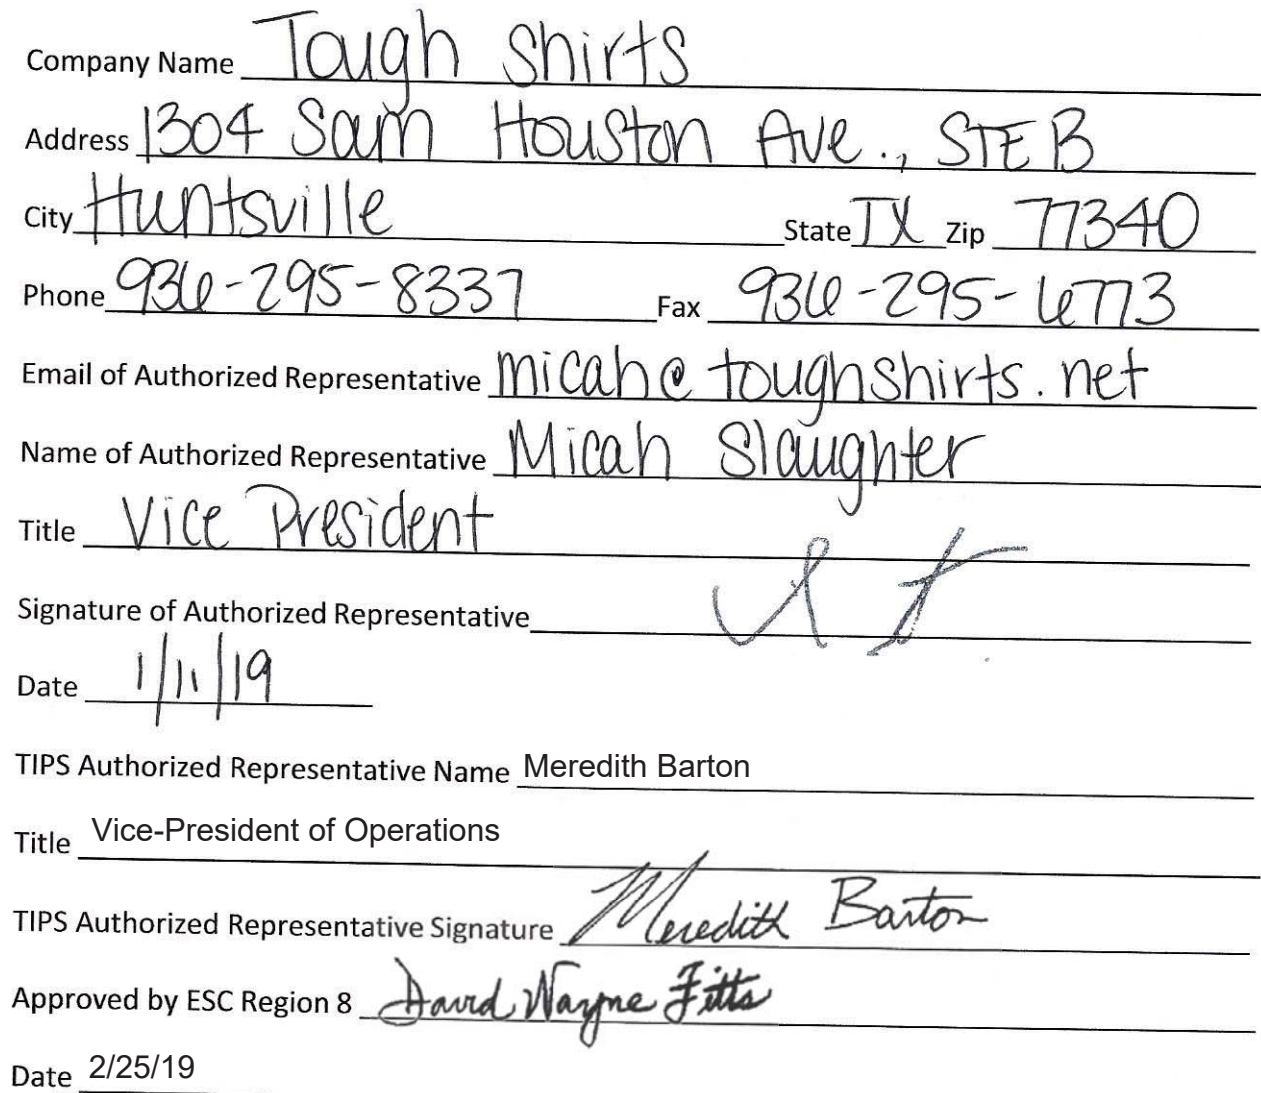 Company Name Tough Shirts
Address 1304 Sam Houston Ave., STE B
City Huntsville State TX Zip 77340
Phone 936-295-8337 Fax 936-295-6773
Email of Authorized Representative micah@toughshirts.net
Name of Authorized Representative Micah Slaughter
Title Vice President
Signature of Authorized Representative
Date 1/11/19
TIPS Authorized Representative Name Meredith Barton
Title Vice-President of Operations
TIPS Authorized Representative Signature Meredith Barton
Approved by ESC Region 8 David Wayne Fitts
Date 2/25/19